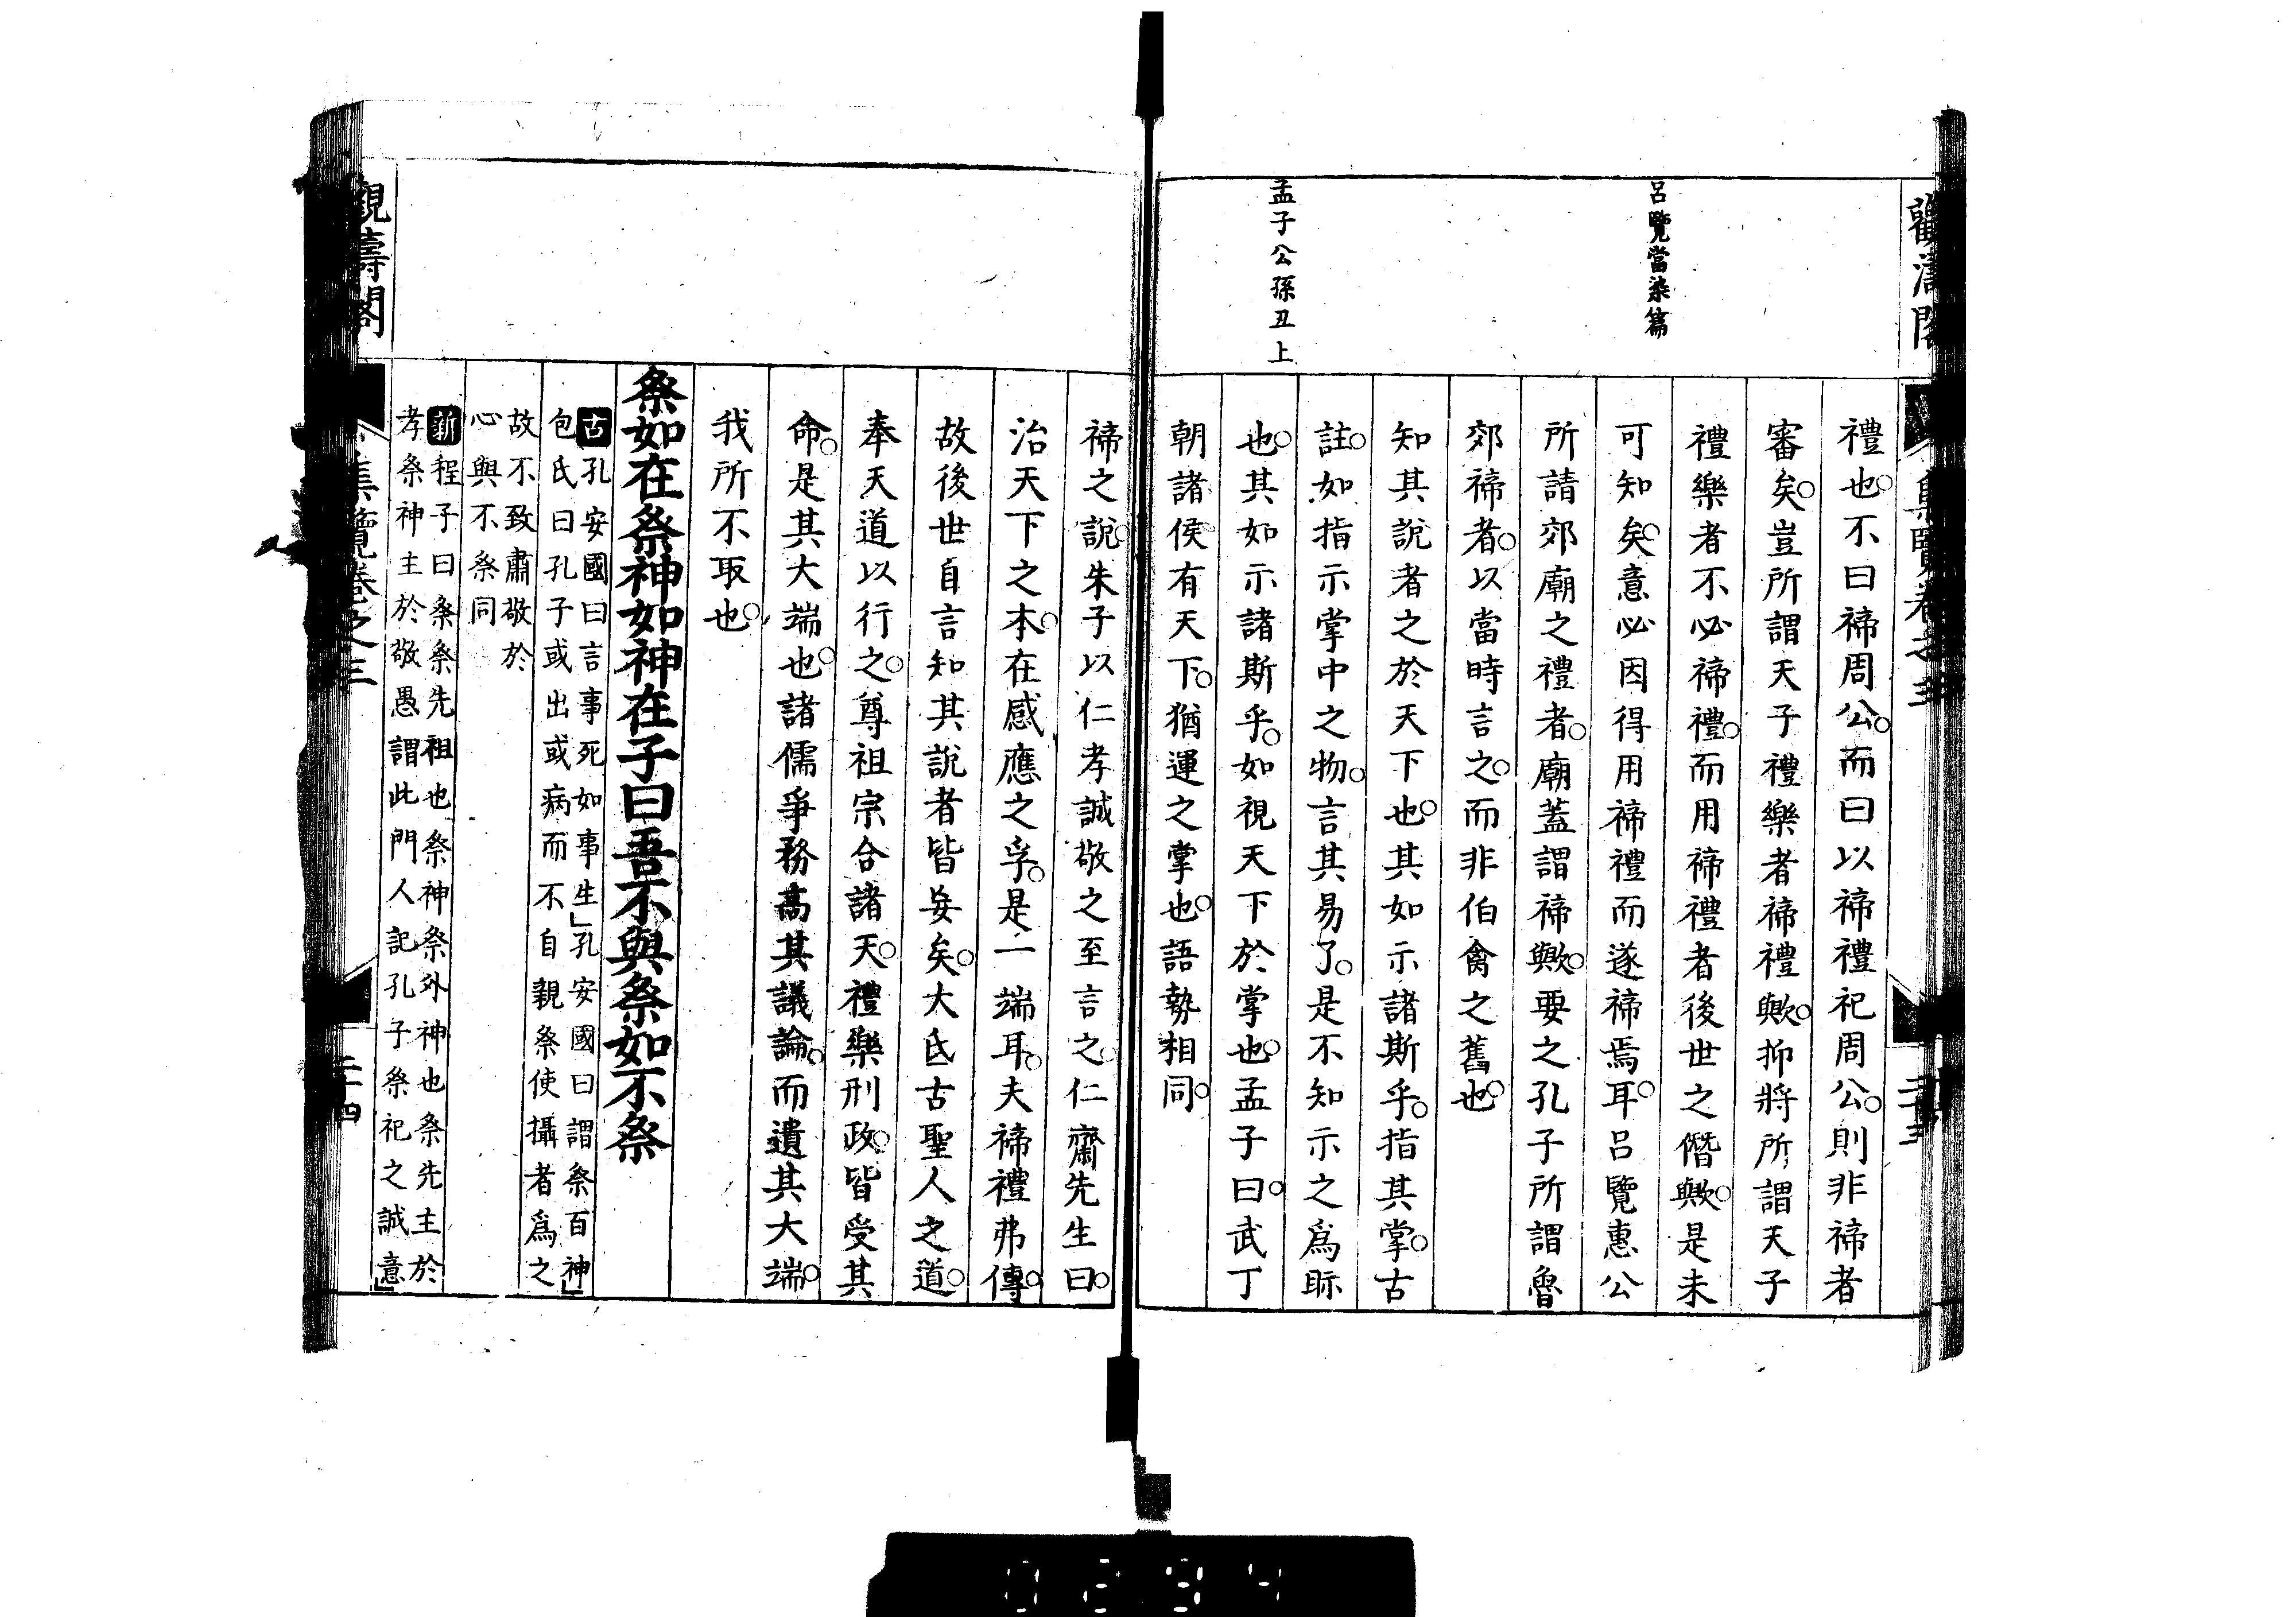 觀濤閣
呂覽當染篇
孟子公孫丑上
禮也。不曰禘周公。而曰以禘禮祀周公。則非禘者
審矣。豈所謂天子禮樂者禘禮歟。抑將所謂天子
禮樂者不必禘禮。而用禘禮者後世之僭歟。是未
可知矣。意必因得用禘禮而遂禘焉耳。呂覽惠公
所請郊廟之禮者。廟蓋謂禘歟。要之孔子所謂魯
郊禘者。以當時言之。而非伯禽之舊也。
知其說者之於天下也。其如示諸斯乎。指其掌。古
註。如指示掌中之物。言其易了。是不知示之爲眎
也。其如示諸斯乎。如視天下於掌也。孟子曰。武丁
朝諸侯有天下。猶運之掌也。語勢相同。
集覽卷之三
二十三
禘之說。朱子以仁孝誠敬之至言之。仁齋先生曰。
治天下之本。在感應之孚。是一端耳。夫禘禮弗傳。
故後世自言知其說者皆妄矣。大氐古聖人之道。
奉天道以行之。尊祖宗合諸天。禮樂刑政。皆受其
命。是其大端也。諸儒爭務高其議論。而遺其大端。
我所不取也。
祭如在祭神如神在子曰吾不與祭如不祭
古孔安國曰言事死如事生」孔安國曰謂祭百神」
包氏曰孔子或出或病而不自親祭使攝者爲之
故不致肅敬於
心與不祭同
新程子曰祭祭先祖也祭神祭外神也祭先主於
孝祭神主於敬愚謂此門人記孔子祭祀之誠意」
觀濤閣
集覽卷之三
二十四
0294